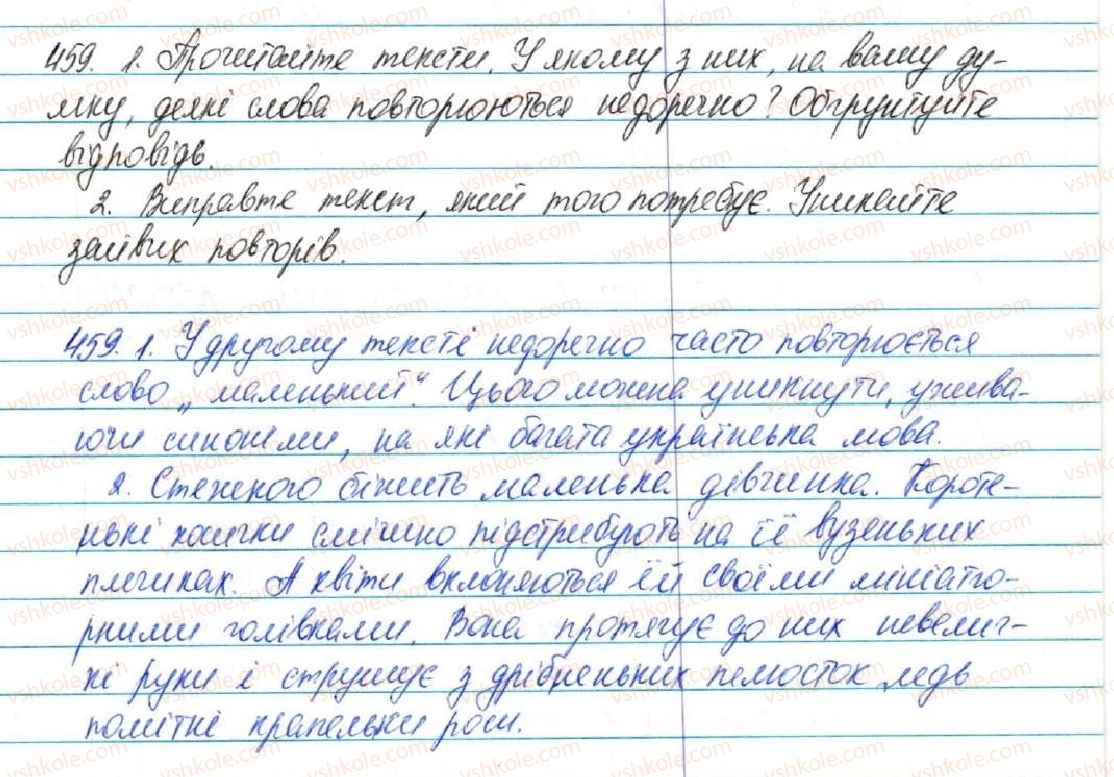 459. 1. Прочитайте тексти. У якому з них, на вашу ду-
мку, деякі слова повторюються недоречно? Обґрунтуйте
відповідь.
2. Виправте текст, який того потребує. Уникайте
зайвих повторів.
459. 1. У другому тексті недоречно часто повторюється
слово „маленький". Цього можна уникнути, ужива-
ючи синоніми, на які багата українська мова.
2. Стежкою біжить маленька дівчинка. Короте-
нькі косички смішно підстрибують на її вузеньких
плечиках. А квіти вклоняються їй своїми мініатю-
рними голівками. Вона протягує до них невелич-
кі руки і струшує з дрібненьких пелюсток ледь
помітні крапельки роси.